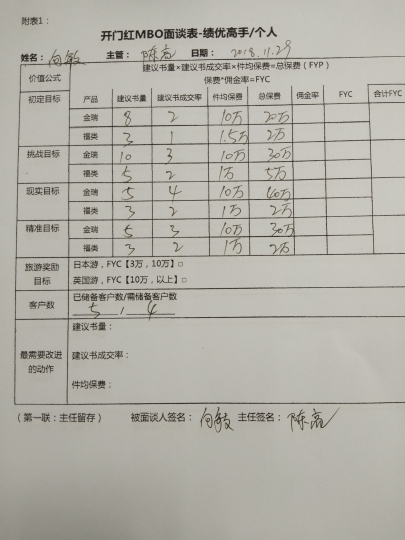 附表1：
开门红MBO面谈表-绩优高手/个人
姓名：向敏 主管：陈高 日期：2018.11.29
价值公式 建议书量×建议书成交率×件均保费=总保费（FYP）
保费*佣金率=FYC
初定目标 产品 建议书量 建议书成交率 件均保费 总保费 佣金率 FYC 合计FYC
金瑞 8 2 10万 20万
福类 3 1 1.5万 2万
挑战目标 金瑞 10 3 10万 30万
福类 5 2 1万 5万
现实目标 金瑞 5 4 10万 40万
福类 3 2 1万 2万
精准目标 金瑞 5 3 10万 30万
福类 3 2 1万 2万
旅游奖励目标 日本游，FYC【3万，10万】□
英国游，FYC【10万，以上】□
客户数 已储备客户数/需储备客户数
5 / 4
最需要改进的动作 建议书量：
建议书成交率：
件均保费：
（第一联：主任留存） 被面谈人签名：向敏 主任签名：陈高